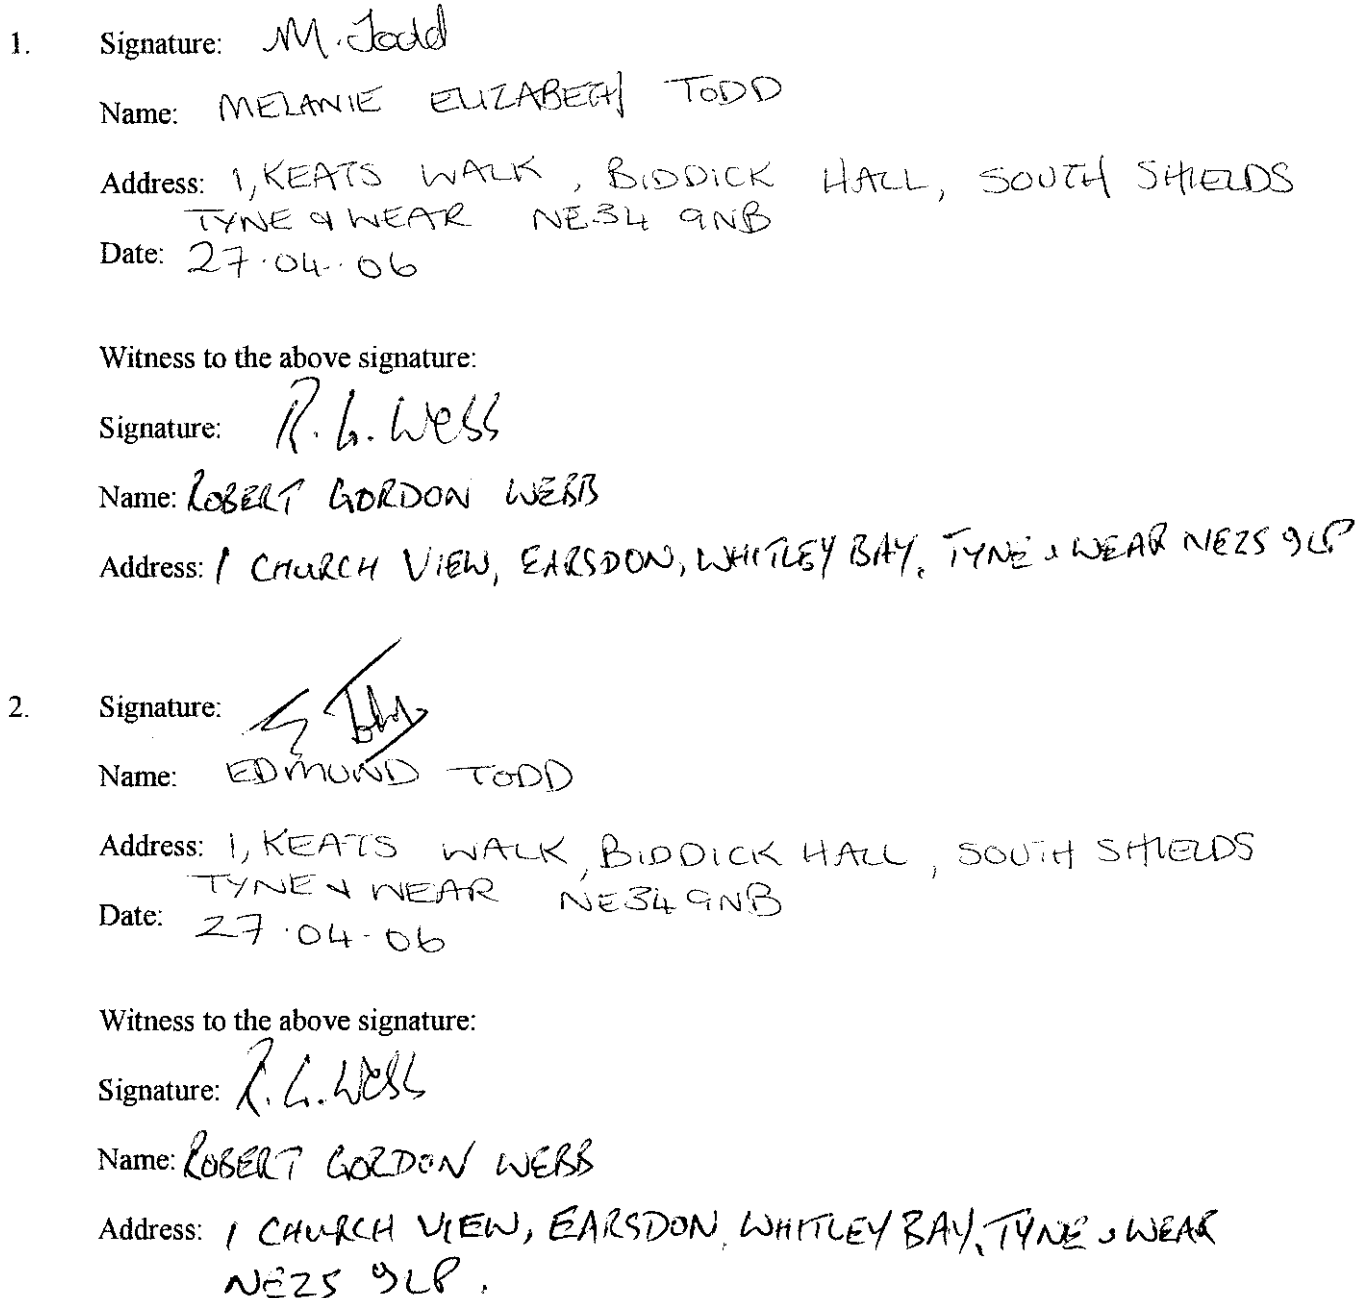 1. Signature: M. Todd
Name: MELANIE ELIZABETH TODD
Address: 1, KEATS WALK, BIDDICK HALL, SOUTH SHIELDS
TYNE & WEAR NE34 9NB
Date: 27.04.06
Witness to the above signature:
Signature: R. G. Webb
Name: ROBERT GORDON WEBB
Address: 1 CHURCH VIEW, EARSDON, WHITLEY BAY, TYNE & WEAR NE25 9LP
2. Signature: E Todd
Name: EDMUND TODD
Address: 1, KEATS WALK, BIDDICK HALL, SOUTH SHIELDS
TYNE & WEAR NE34 9NB
Date: 27.04.06
Witness to the above signature:
Signature: R. G. Webb
Name: ROBERT GORDON WEBB
Address: 1 CHURCH VIEW, EARSDON, WHITLEY BAY, TYNE & WEAR
NE25 9LP.